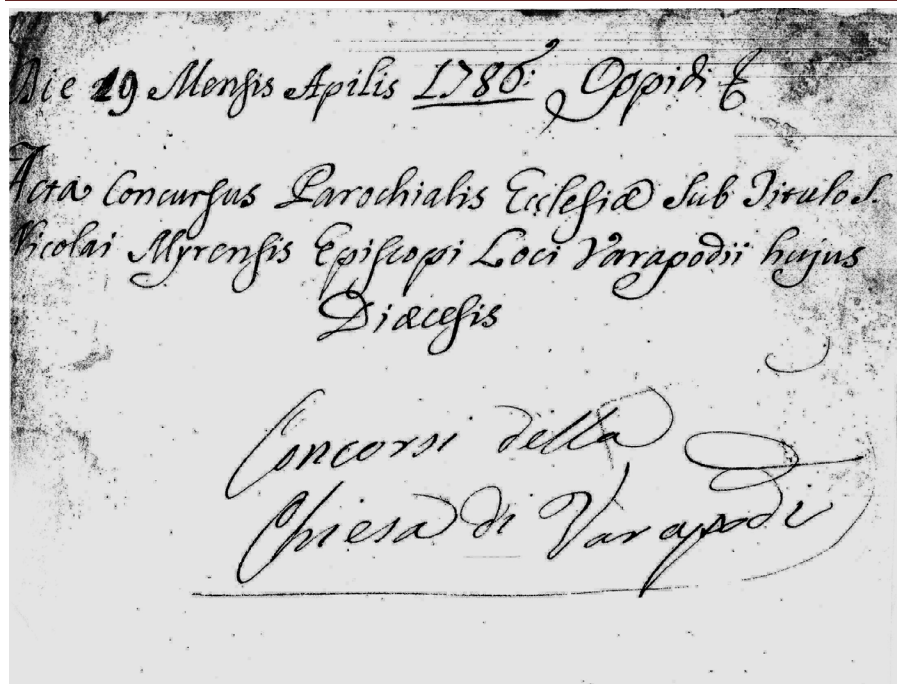 Die 19 Mensis Apilis 1786: Oppidi &
Acta Concursus Parochialis Ecclesiæ Sub Titulo S.
Nicolai Myrensis Episcopi Loci Varapodii hujus
Diæcesis
Concorsi della
Chiesa di Varapodi